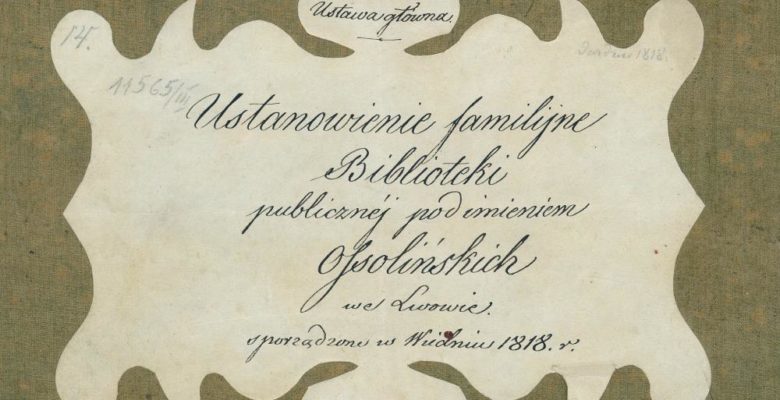 Ustawa główna.
14.
11565/III
1818.
Ustanowienie familijne
Biblioteki
publicznéj pod imieniem
Ossolińskich
we Lwowie.
sporządzone w Wiédniu 1818. r.